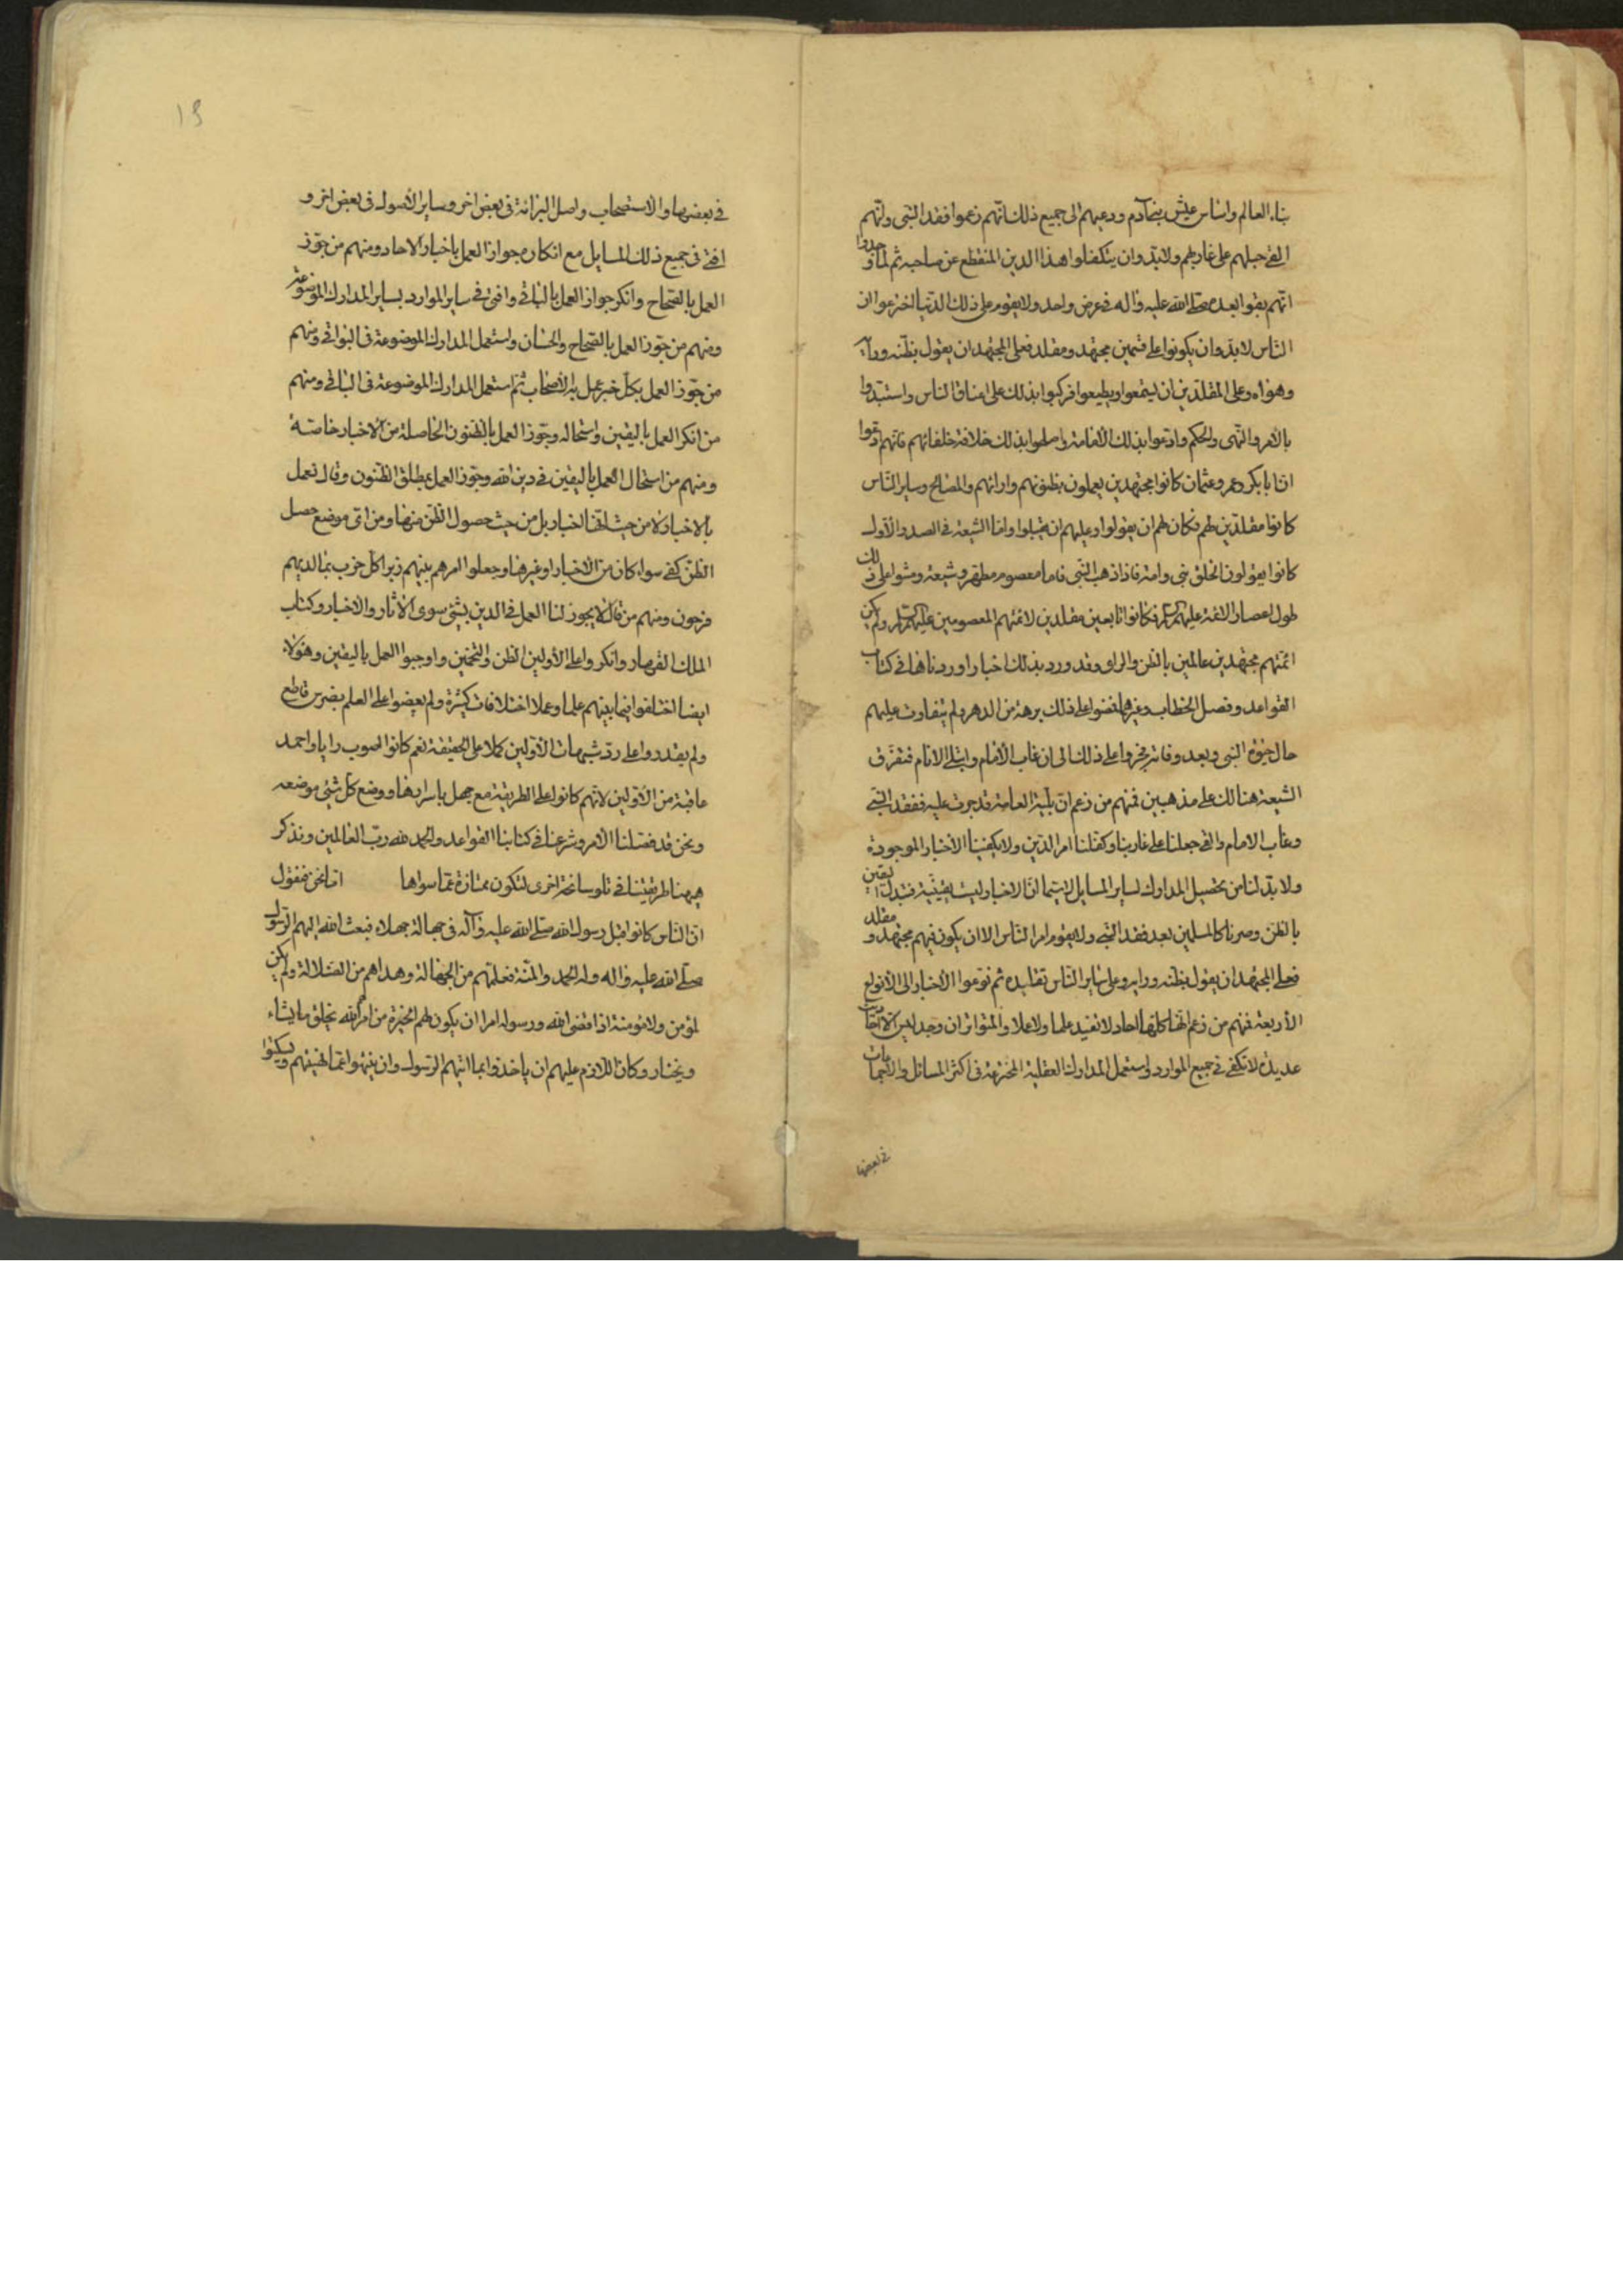 بناء العالم واساس عيش بني آدم ودعيهم الى جميع ذلك انهم زعموا فقد النبي وانهم
القى حبلهم على غاربهم ولابد وان يتكفلوا هذا الدين المنقطع عن صاحبه ثم لما وجدوا
انهم بقوا بعده صلى الله عليه واله في عرض واحد ولا يقوم على ذلك الدنيا اخترعوا ان
الناس لابد وان يكونوا على قسمين مجتهد ومقلد فعلى المجتهد ان يقول بظنه ورأيه
وهواه وعلى المقلدين ان يسمعوا ويطيعوا فركبوا بذلك على اعناق الناس واستبدوا
بالامر والنهى والحكم وادعوا بذلك الامامة واصلحوا بذلك خلافة خلفائهم فانهم ادعوا
ان ابا بكر وعمر وعثمان كانوا مجتهدين يعملون بظنونهم وارائهم والمصالح وساير الناس
كانوا مقلدين لهم فكان لهم ان يقولوا وعليهم ان يقبلوا واما الشيعة في الصدر الاول
كانوا يقولون الخلق نبي وامته فاذا ذهب النبي فامام معصوم مطهر وشيعته ومشوا على ذلك
طول اعصار الائمة عليهم السلام فكانوا تابعين مقلدين لائمتهم المعصومين عليهم السلام ولم يكن
ائمتهم مجتهدين عالمين بالظن والراى وقد ورد بذلك اخبار اوردناها في كتاب
القواعد وفصل الخطاب وغيرهما فمضوا على ذلك برهة من الدهر ولم يتفاوت عليهم
حال حيوة النبي وبعد وفاته فجروا على ذلك الى ان غاب الامام وابتلى الانام فتفرق
الشيعة هنالك على مذهبين فمنهم من زعم ان بلية العامة قد جرت عليه ففقد النبي
وغاب الامام والقى حبلنا على غاربنا وكفلنا امر الدين ولا يكفينا الاخبار الموجودة
ولابد لنا من تحصيل المدارك لساير المسايل لاسيما ان الاخبار ليست يقينية فتبدل اليقين
بالظن وصرنا كالمسلمين بعد فقد النبي ولا يقوم امر الناس الا ان يكون فيهم مجتهد ومقلد
فعلى المجتهد ان يقول بظنه ورايه وعلى ساير الناس تقليده ثم نوعوا الاخبار الى الانواع
الاربعة فمنهم من زعم انها كلها احاد لا تفيد علما ولا عملا والمتواتر ان وجد ليس الا
عديدة لا تكفي في جميع الموارد واستعمل المدارك العقلية المخترعة في اكثر المسائل والاجماعات
في بعضها
١٩
في بعضها والاستصحاب واصل البرائة في بعض اخر وساير الاصول في بعض اخر و
افتى في جميع ذلك المسايل مع انكاره جواز العمل باخبار الاحاد ومنهم من جوز
العمل بالصحاح وانكر جواز العمل بالباقي وافتى في ساير الموارد بساير المدارك الموضوعة
ومنهم من جوز العمل بالصحاح والحسان واستعمل المدارك الموضوعة في البواقي ومنهم
من جوز العمل بكل خبر عمل به الاصحاب ثم استعمل المدارك الموضوعة في الباقي ومنهم
من انكر العمل باليقين واستحاله وجوز العمل بالظنون الحاصلة من الاخبار خاصة
ومنهم من استحال العمل باليقين في دين الله وجوز العمل بمطلق الظنون وقال نعمل
بالاخبار لا من حيث انها اخبار بل من حيث حصول الظن منها ومن اى موضع حصل
الظن كفى سواء كان من الاخبار او غيرها وجعلوا امرهم بينهم زبرا كل حزب بما لديهم
فرحون ومنهم من قال لا يجوز لنا العمل في الدين بشيء سوى الاثار والاخبار وكتاب
الملك القهار وانكروا على الاولين الظن والتخمين واوجبوا العمل باليقين وهؤلاء
ايضا اختلفوا فيما بينهم علما وعملا اختلافات كثيرة ولم يعضوا على العلم بضرس قاطع
ولم يقدروا على رد شبهات الاولين كملا على الحقيقة نعم كانوا اصوب رايا واحمد
عاقبة من الاولين لانهم كانوا على الطريقة مع جهل باسرارها ووضع كل شيء موضعه
ونحن قد فصلنا الامر وشرعنا في كتابنا القواعد والحمد لله رب العالمين ونذكر
هيهنا طريقتنا في تلو سانحة اخرى لتكون ممتازة عما سواها اما نحن فنقول
ان الناس كانوا قبل رسول الله صلى الله عليه وآله في جهالة جهلاء فبعث الله اليهم الرسول
صلى الله عليه واله وله الحمد والمنة فعلمهم من الجهالة وهداهم من الضلالة ولم يكن
لمؤمن ولا مؤمنة اذا قضى الله ورسوله امرا ان يكون لهم الخيرة من امر الله يخلق ما يشاء
ويختار وكان اللازم عليهم ان ياخذوا بما اتيهم الرسول وان ينتهوا عما نهيهم ويسكتوا